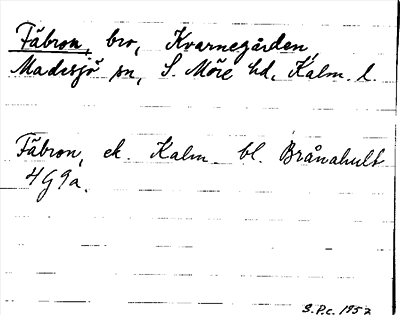 Fäbron, bro, Kvarnegården,
Madesjö sn, S. Möre hd, Kalm. l.
Fäbron, ek. Kalm. bl. Brånahult
4G9a.
S.P.c. 1957